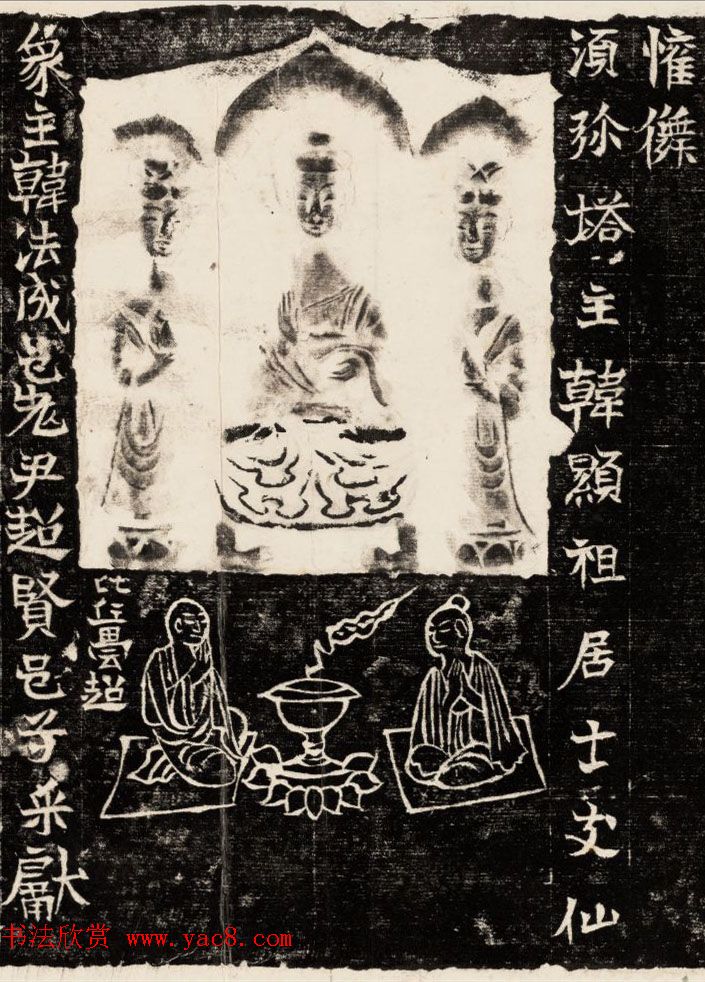 湏弥塔主韓顯祖居士仙
比丘曇超
象主韓法成邑老尹超賢邑子采獻
书法欣赏 www.yac8.com